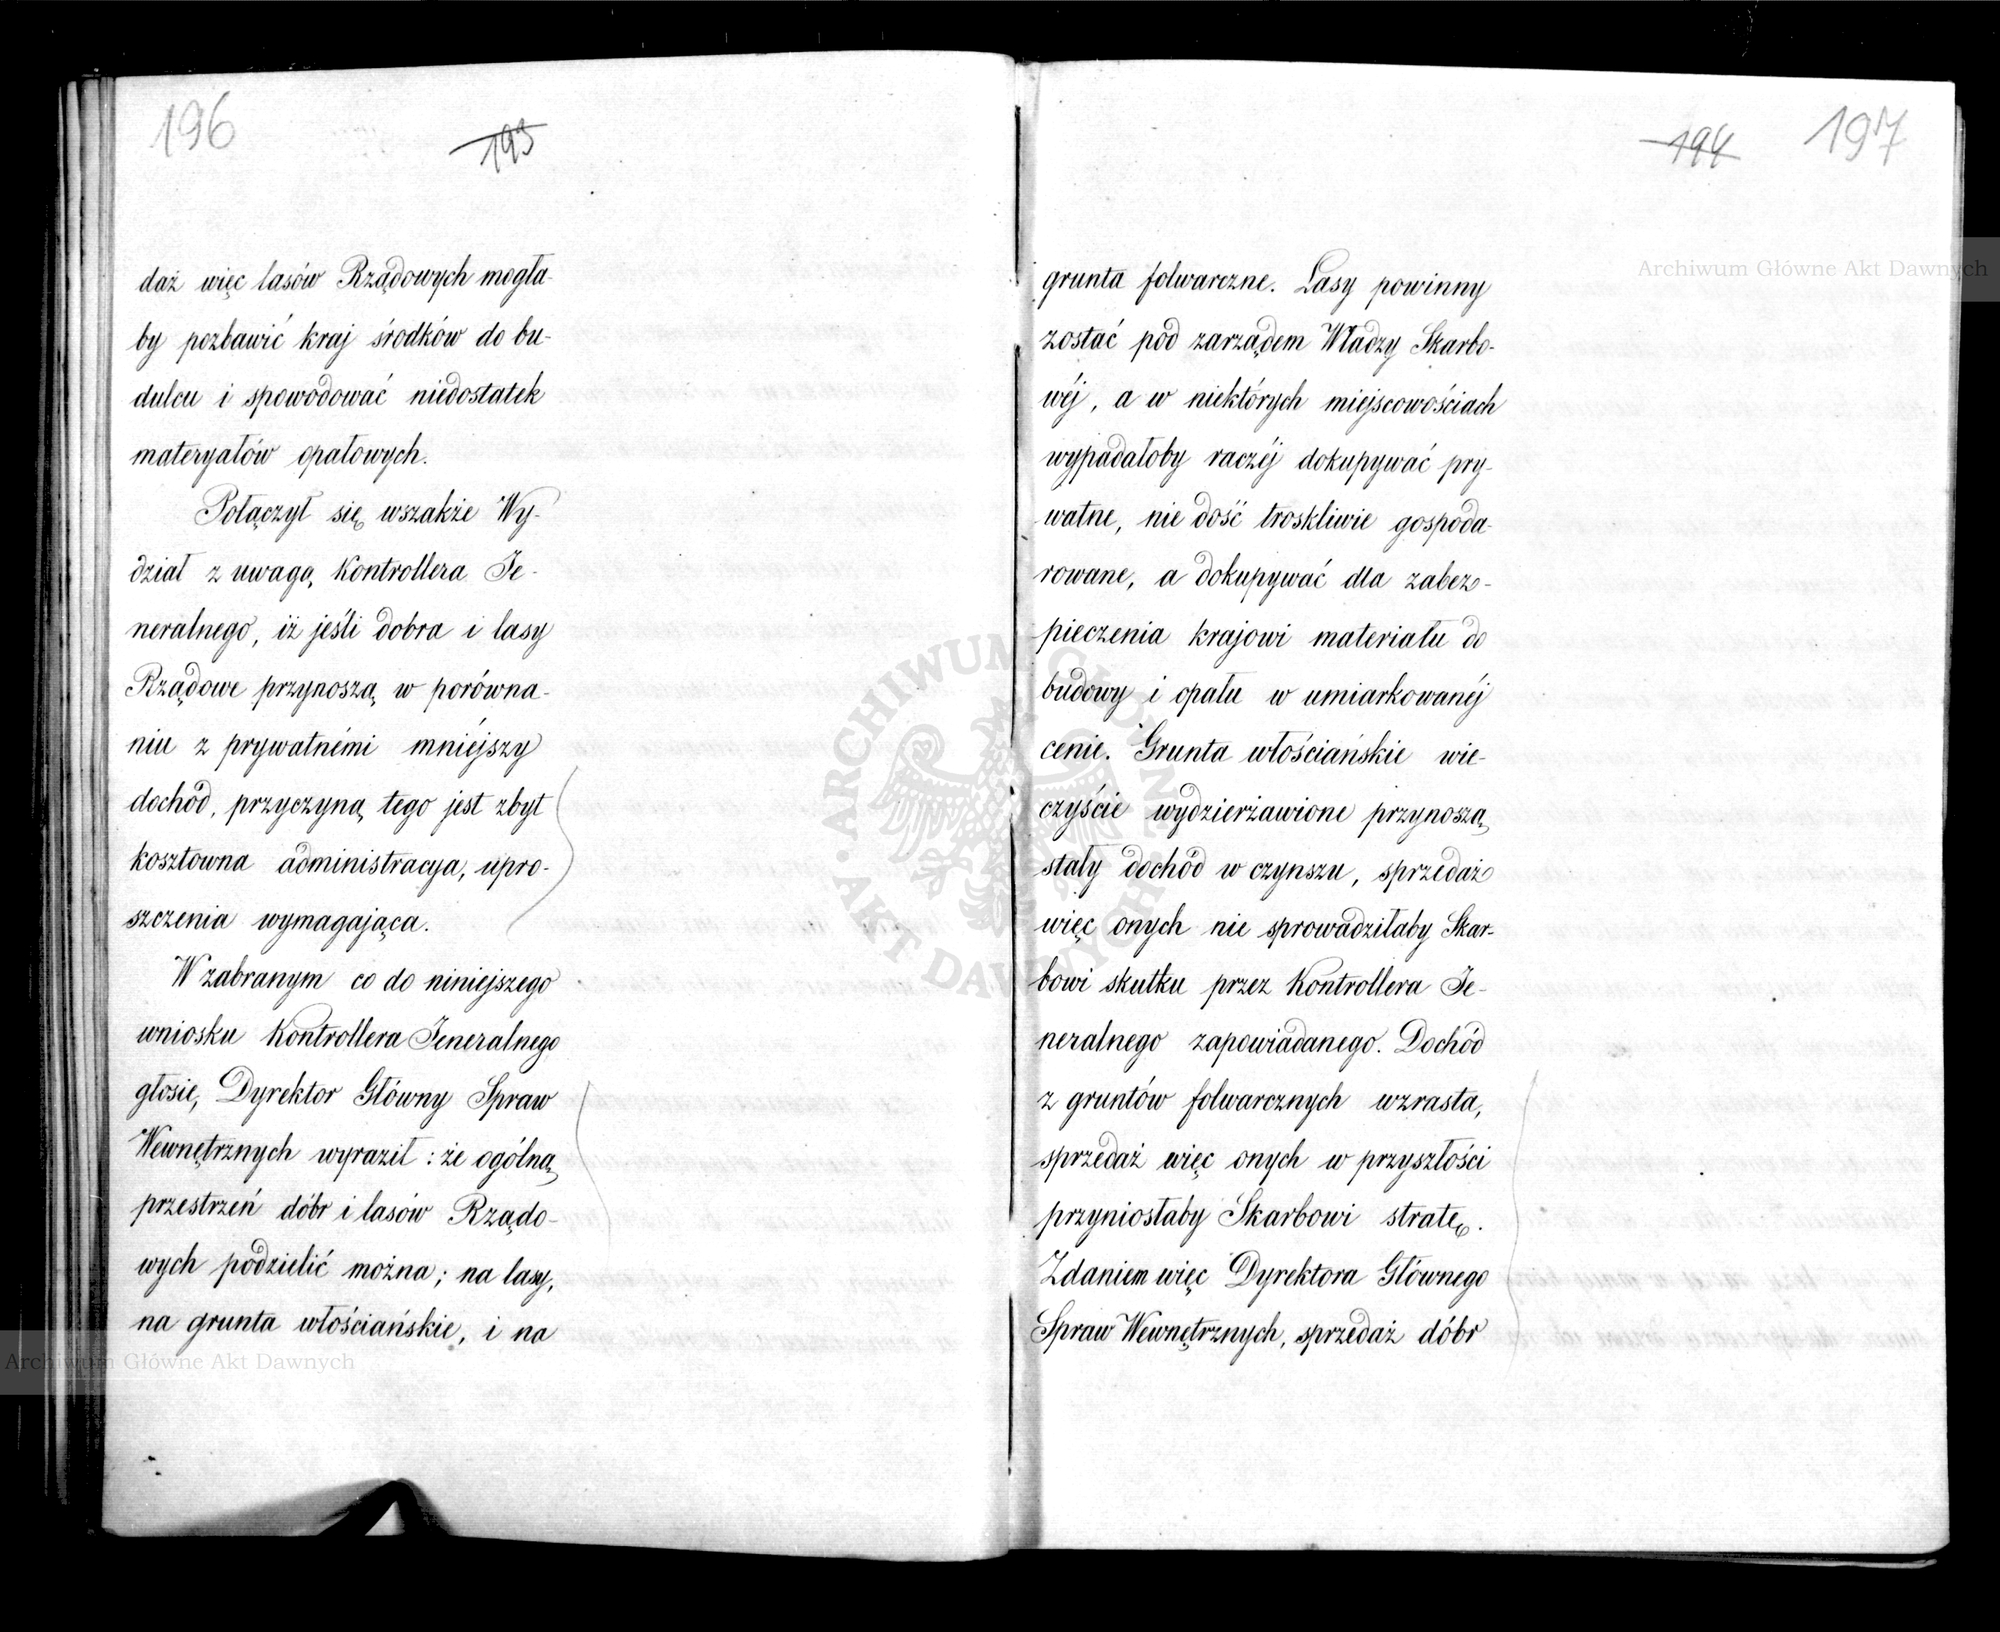 196
193
daż więc lasów Rządowych mogła-
by pozbawić kraj środków do bu-
dulcu i spowodować niedostatek
materyałów opałowych.
Połączył się wszakże Wy-
dział z uwagą Kontrollera Je-
neralnego, iż jeśli dobra i lasy
Rządowe przynoszą w porówna-
niu z prywatnémi mniéjszy
dochód, przyczyną tego jest zbyt
kosztowna administracya, upro-
szczenia wymagająca.
W zabranym co do niniejszego
wniosku Kontrollera Jeneralnego
głosie, Dyrektor Główny Spraw
Wewnętrznych wyraził: że ogólną
przestrzeń dóbr i lasów Rządo-
wych podzielić można; na lasy,
na grunta włościańskie, i na
194
197
grunta folwarczne. Lasy powinny
zostać pod zarządem Władzy Skarbo-
wéj, a w niektórych miejscowościach
wypadałoby raczéj dokupywać pry-
watne, nie dość troskliwie gospoda-
rowane, a dokupywać dla zabez-
pieczenia krajowi materiału do
budowy i opału w umiarkowanéj
cenie. Grunta włościańskie wie-
czyście wydzierżawione przynoszą
stały dochód w czynszu, sprzedaż
więc onych nie sprowadziłaby Skar-
bowi skutku przez Kontrollera Je-
neralnego zapowiadanego. Dochód
z gruntów folwarcznych wzrasta,
sprzedaż więc onych w przyszłości
przyniosłaby Skarbowi stratę.
Zdaniem więc Dyrektora Głównego
Spraw Wewnętrznych, sprzedaż dóbr
Archiwum Główne Akt Dawnych
Archiwum Główne Akt Dawnych
ARCHIWUM GŁÓWNE AKT DAWNYCH